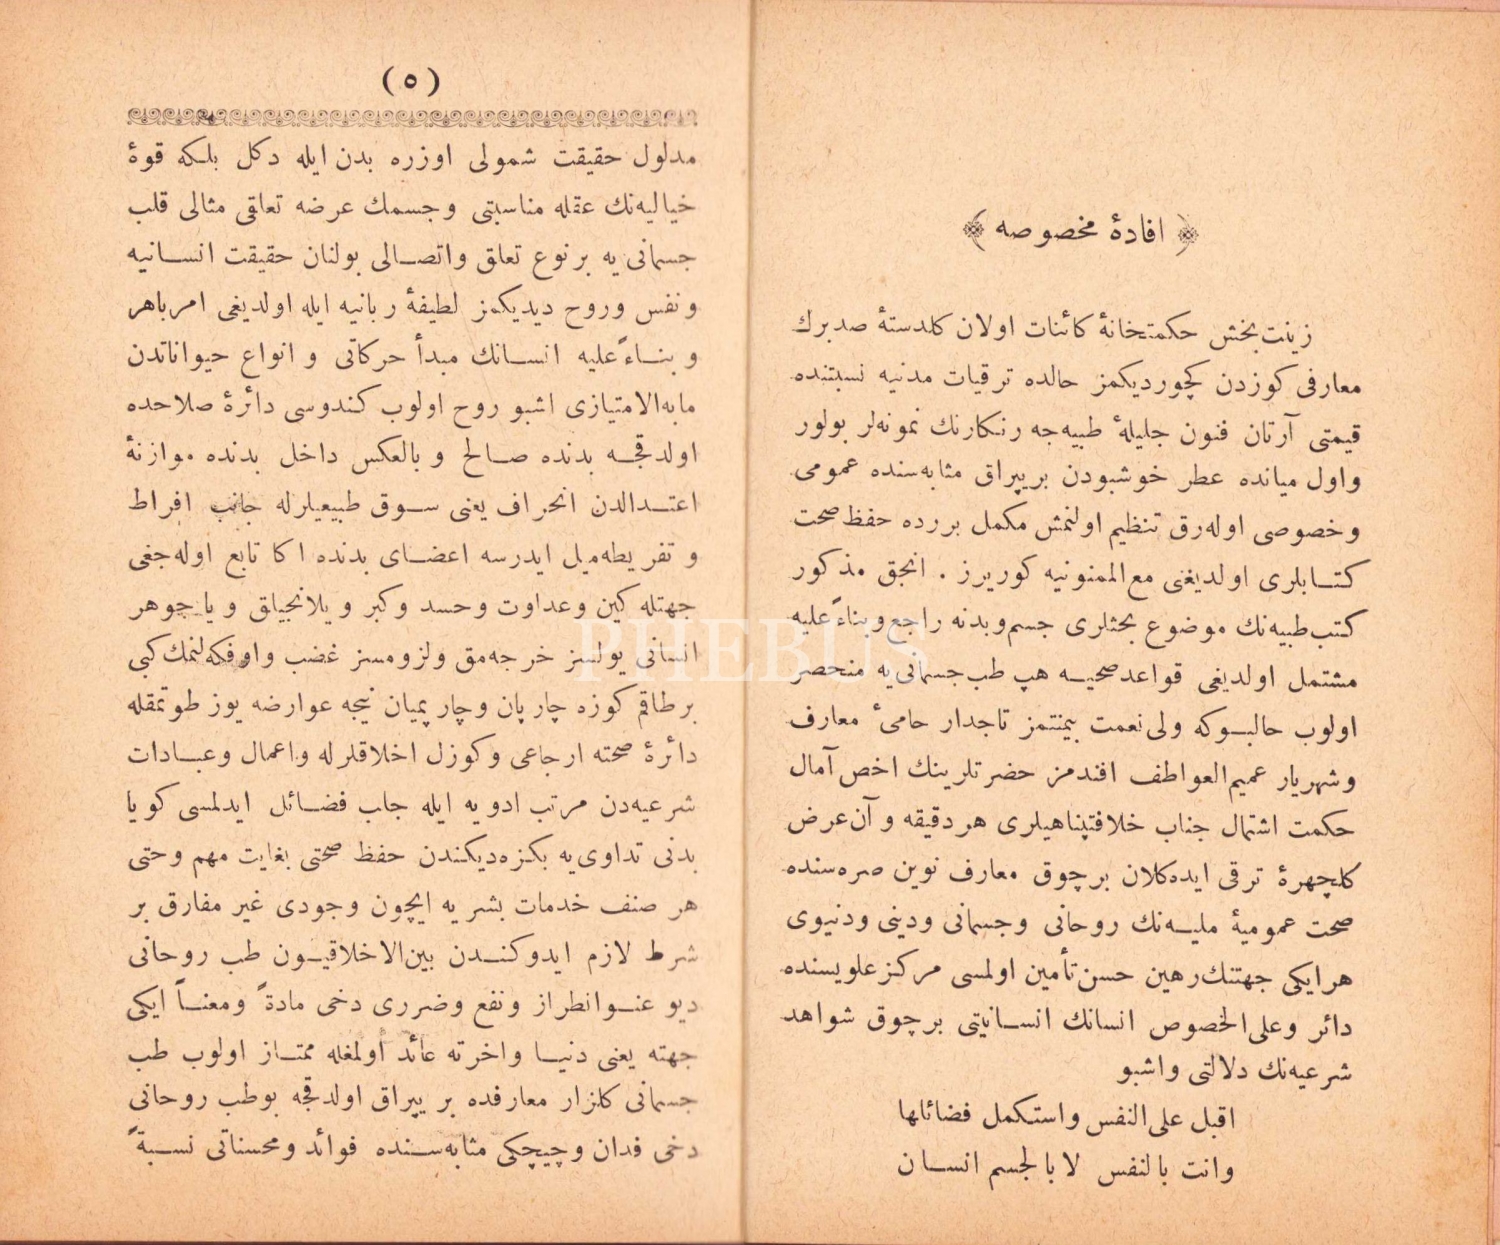 ﴿ افادۀ مخصوصه ﴾
زینت‌بخش حکمتخانۀ کائنات اولان کلدستۀ صدبرك
معارفی کوزدن کچوردیکمز حالده ترقیات مدنیه نسبتنده
قیمتی آرتان فنون جلیلۀ طبیه‌جه رنکارنك نمونه‌لر بولور
واول میانده عطر خوشبودن بر یپراق مثابه‌سنده عمومی
وخصوصی اوله‌رق تنظیم اولنمش مکمل بررده حفظ صحت
کتابلری اولدیغنی مع‌الممنونیه کوریرز . انجق مذکور
کتب‌طبیه‌نك موضوع بحثلری جسم‌وبدنه راجع‌وبناءً‌علیه
مشتمل اولدیغی قواعد صحیه هپ طب‌جسمانی‌یه منحصر
اولوب حالبوکه ولی‌نعمت بیمنتمز تاجدار حامیٔ معارف
وشهریار عمیم‌العواطف افندمز حضرتلرینك اخص آمال
حکمت اشتمال جناب خلافتپناهیلری هر دقیقه و آن‌عرض
کلچهرۀ ترقی ایده‌کلان برچوق معارف نوین صره‌سنده
صحت عمومیۀ ملیه‌نك روحانی وجسمانی ودینی ودنیوی
هر ایکی جهتنك‌رهین حسن‌تأمین اولمسی مرکز علویسنده
دائر وعلی‌الخصوص انسانك انسانیتی برچوق شواهد
شرعیه‌نك دلالتی واشبو
اقبل علی‌النفس واستکمل فضائلها
وانت بالنفس لا بالجسم انسان
( ٥ )
مدلول حقیقت شمولی اوزره بدن ایله دکل بلکه قوۀ
خیالیه‌نك عقله مناسبتی وجسمك عرضه تعلقی مثالی قلب
جسمانی‌یه برنوع تعلق واتصالی بولنان حقیقت انسانیه
ونفس وروح دیدیکمز لطیفۀ ربانیه ایله اولدیغی امرباهر
و بناءً‌علیه انسانك مبدأ حرکاتی و انواع حیواناتدن
مابه‌الامتیازی اشبو روح اولوب کندوسی دائرۀ صلاحده
اولدقجه بدنده صالح و بالعکس داخل بدنده موازنۀ
اعتدالدن انحراف یعنی سوق طبیعیلرله جانب افراط
و تفریطه‌میل ایدرسه اعضای بدنده اکا تابع اوله‌جغی
جهتله کین وعداوت وحسد وکبر و یلانجیلق و یا جوهر
انسانی یولسز خرجه‌مق ولزومسز غضب واوفکه‌لنمك کبی
برطاقم کوزه چارپان وچارپمیان نیجه عوارضه یوز طوتمقله
دائرۀ صحته ارجاعی وکوزل اخلاقلرله واعمال وعبادات
شرعیه‌دن مرتب ادویه ایله جلب فضائل ایدلمسی کویا
بدنی تداوی‌یه بکزه‌دیکندن حفظ صحتی بغایت مهم وحتی
هر صنف خدمات بشریه ایچون وجودی غیر مفارق بر
شرط لازم ایدوکندن بین‌الاخلاقیون طب روحانی
دیو عنوانطراز ونفع وضرری دخی مادةً ومعناً ایکی
جهته یعنی دنیا واخرته عائد اولمغله ممتاز اولوب طب
جسمانی کلزار معارفده بر یپراق اولدقجه بوطب روحانی
دخی فدان وچیچکی مثابه‌سنده فوائد ومحسناتی نسبةً
PHEBUS